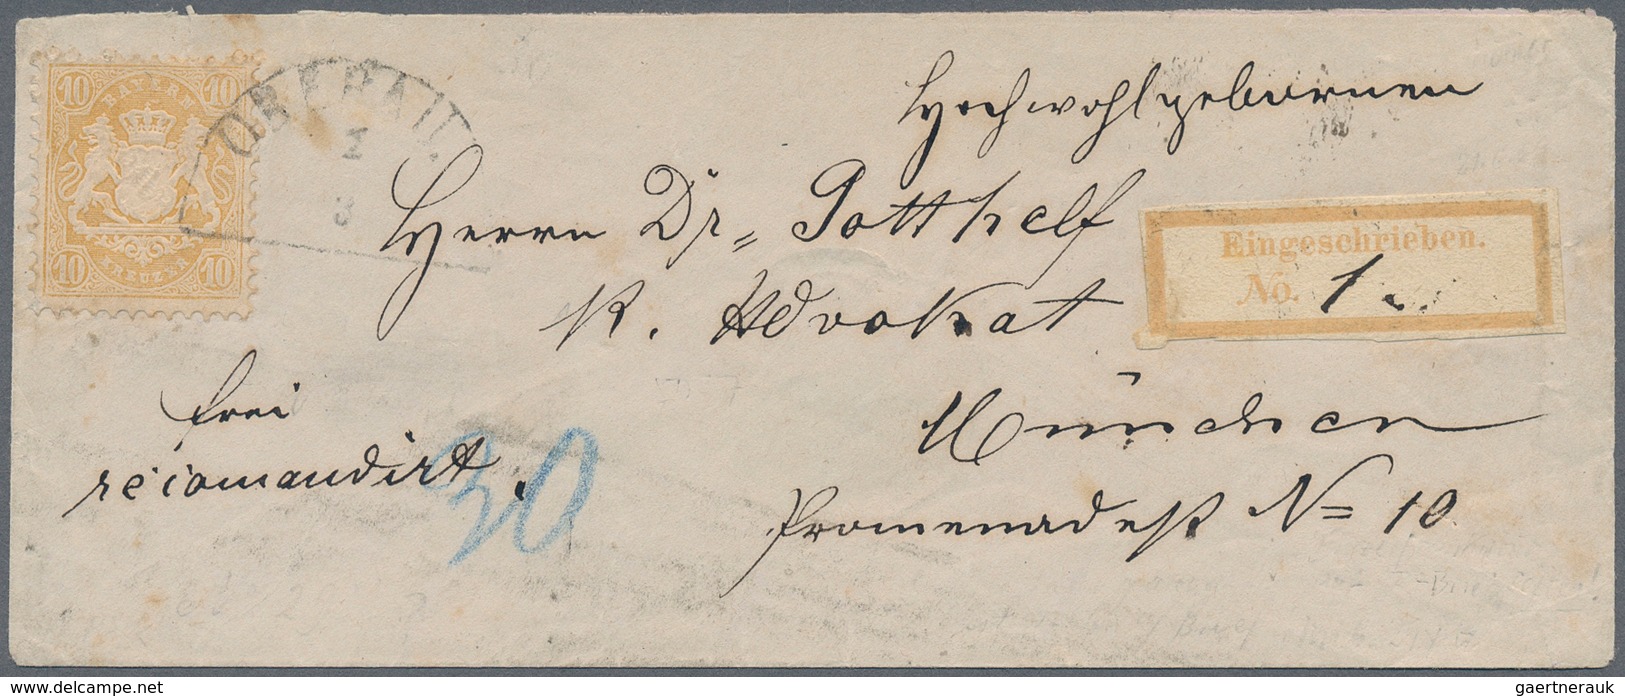 10 BAYERN 10
10 KREUZER 10
OBERAU.
1
8
Hochwohlgebornen
Herrn Dr. Gotthelf
K. Advokat
München
Promenadest No 10
Eingeschrieben.
No. 1.
frei
recomandirt.
30
© delcampe.net
gaertnerauk